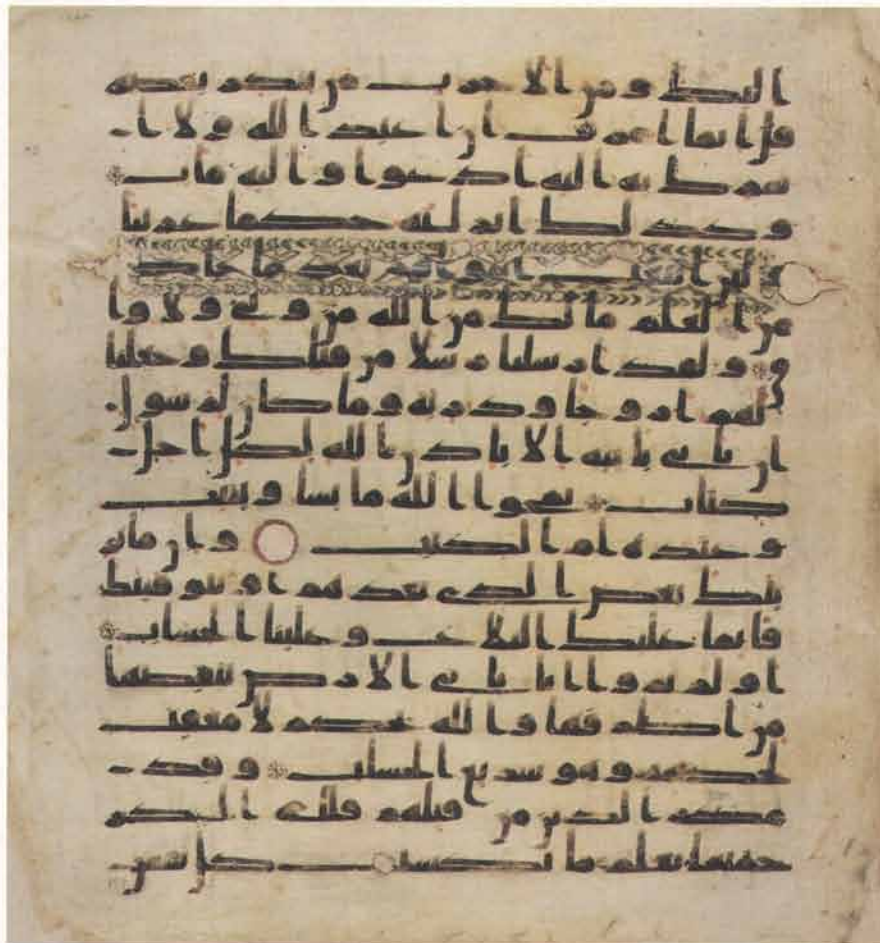 اليك ومن الاحزب من ينكر بعضه
قل انما امرت ان اعبد الله ولا ا
شرك به اليه ادعوا واليه ماب
وكذلك انزلنه حكما عربيا
ولئن اتبعت اهواهم بعد ما جاك
من العلم ما لك من الله من ولى ولا وا
ق ولقد ارسلنا رسلا من قبلك وجعلنا
لهم ازوجا وذرية وما كان لرسول
ان ياتى باية الا باذن الله لكل اجل
كتاب يمحوا الله ما يشا ويثبت
وعنده ام الكتب وان ما نر
ينك بعض الذى نعدهم او نتوفينك
فانما عليك البلاغ وعلينا الحساب
اولم يروا انا ناتى الارض ننقصها
من اطرفها والله يحكم لا معقب
لحكمه وهو سريع الحساب وقد
مكر الذين من قبلهم فلله المكر
جميعا يعلم ما تكسب كل نفس